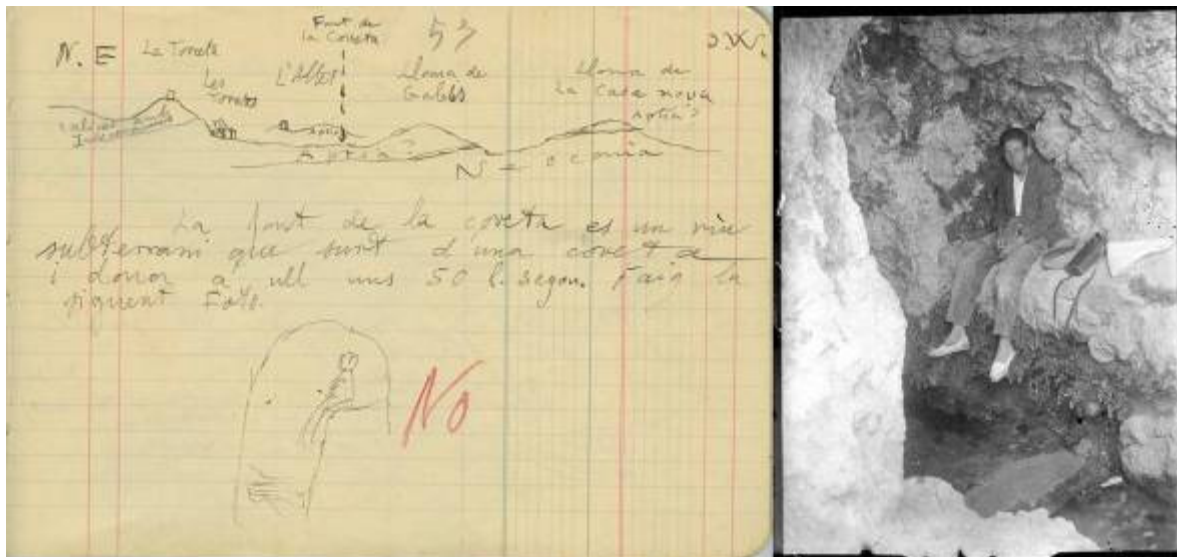 Font de
la Coveta
53
N. E
La Torreta
S.W.
Les
Torretes
L'Albor
Lloma de
Galbis
Lloma de
La Casa nova
Aptia?
Aptia?
N - ocomia
La font de la coveta es un riu
subterrani que surt d'una coveta
i donar a ull uns 50 l. segon. Faig la
siguent Foto.
No